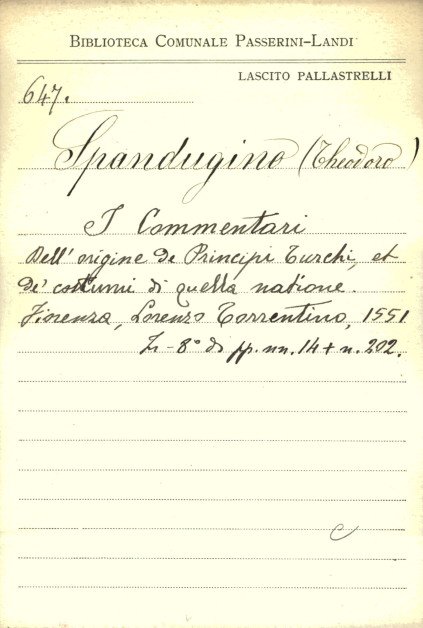 BIBLIOTECA COMUNALE PASSERINI-LANDI
LASCITO PALLASTRELLI
647.
Spandugino (Theodoro)
I Commentari
Dell' origine de Principi Turchi, et
de' costumi di quella natione.
Fiorenza, Lorenzo Torrentino, 1551
In-8° di pp. nn. 14 + n. 202.
C